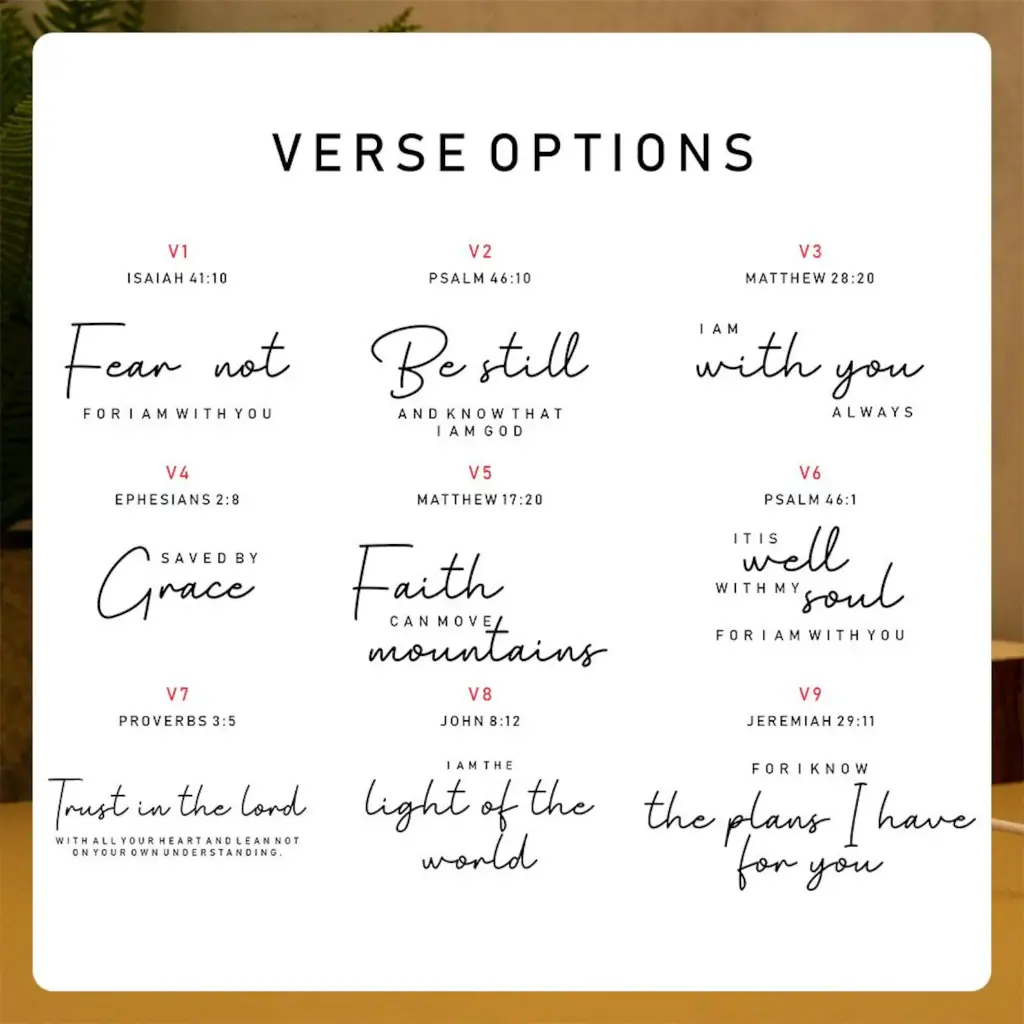 VERSE OPTIONS
V1
ISAIAH 41:10
Fear not
FOR I AM WITH YOU
V2
PSALM 46:10
Be still
AND KNOW THAT
I AM GOD
V3
MATTHEW 28:20
I AM
with you
ALWAYS
V4
EPHESIANS 2:8
SAVED BY
Grace
V5
MATTHEW 17:20
Faith
CAN MOVE
mountains
V6
PSALM 46:1
IT IS
well
WITH MY
soul
FOR I AM WITH YOU
V7
PROVERBS 3:5
Trust in the lord
WITH ALL YOUR HEART AND LEAN NOT
ON YOUR OWN UNDERSTANDING.
V8
JOHN 8:12
I AM THE
light of the
world
V9
JEREMIAH 29:11
FOR I KNOW
the plans I have
for you